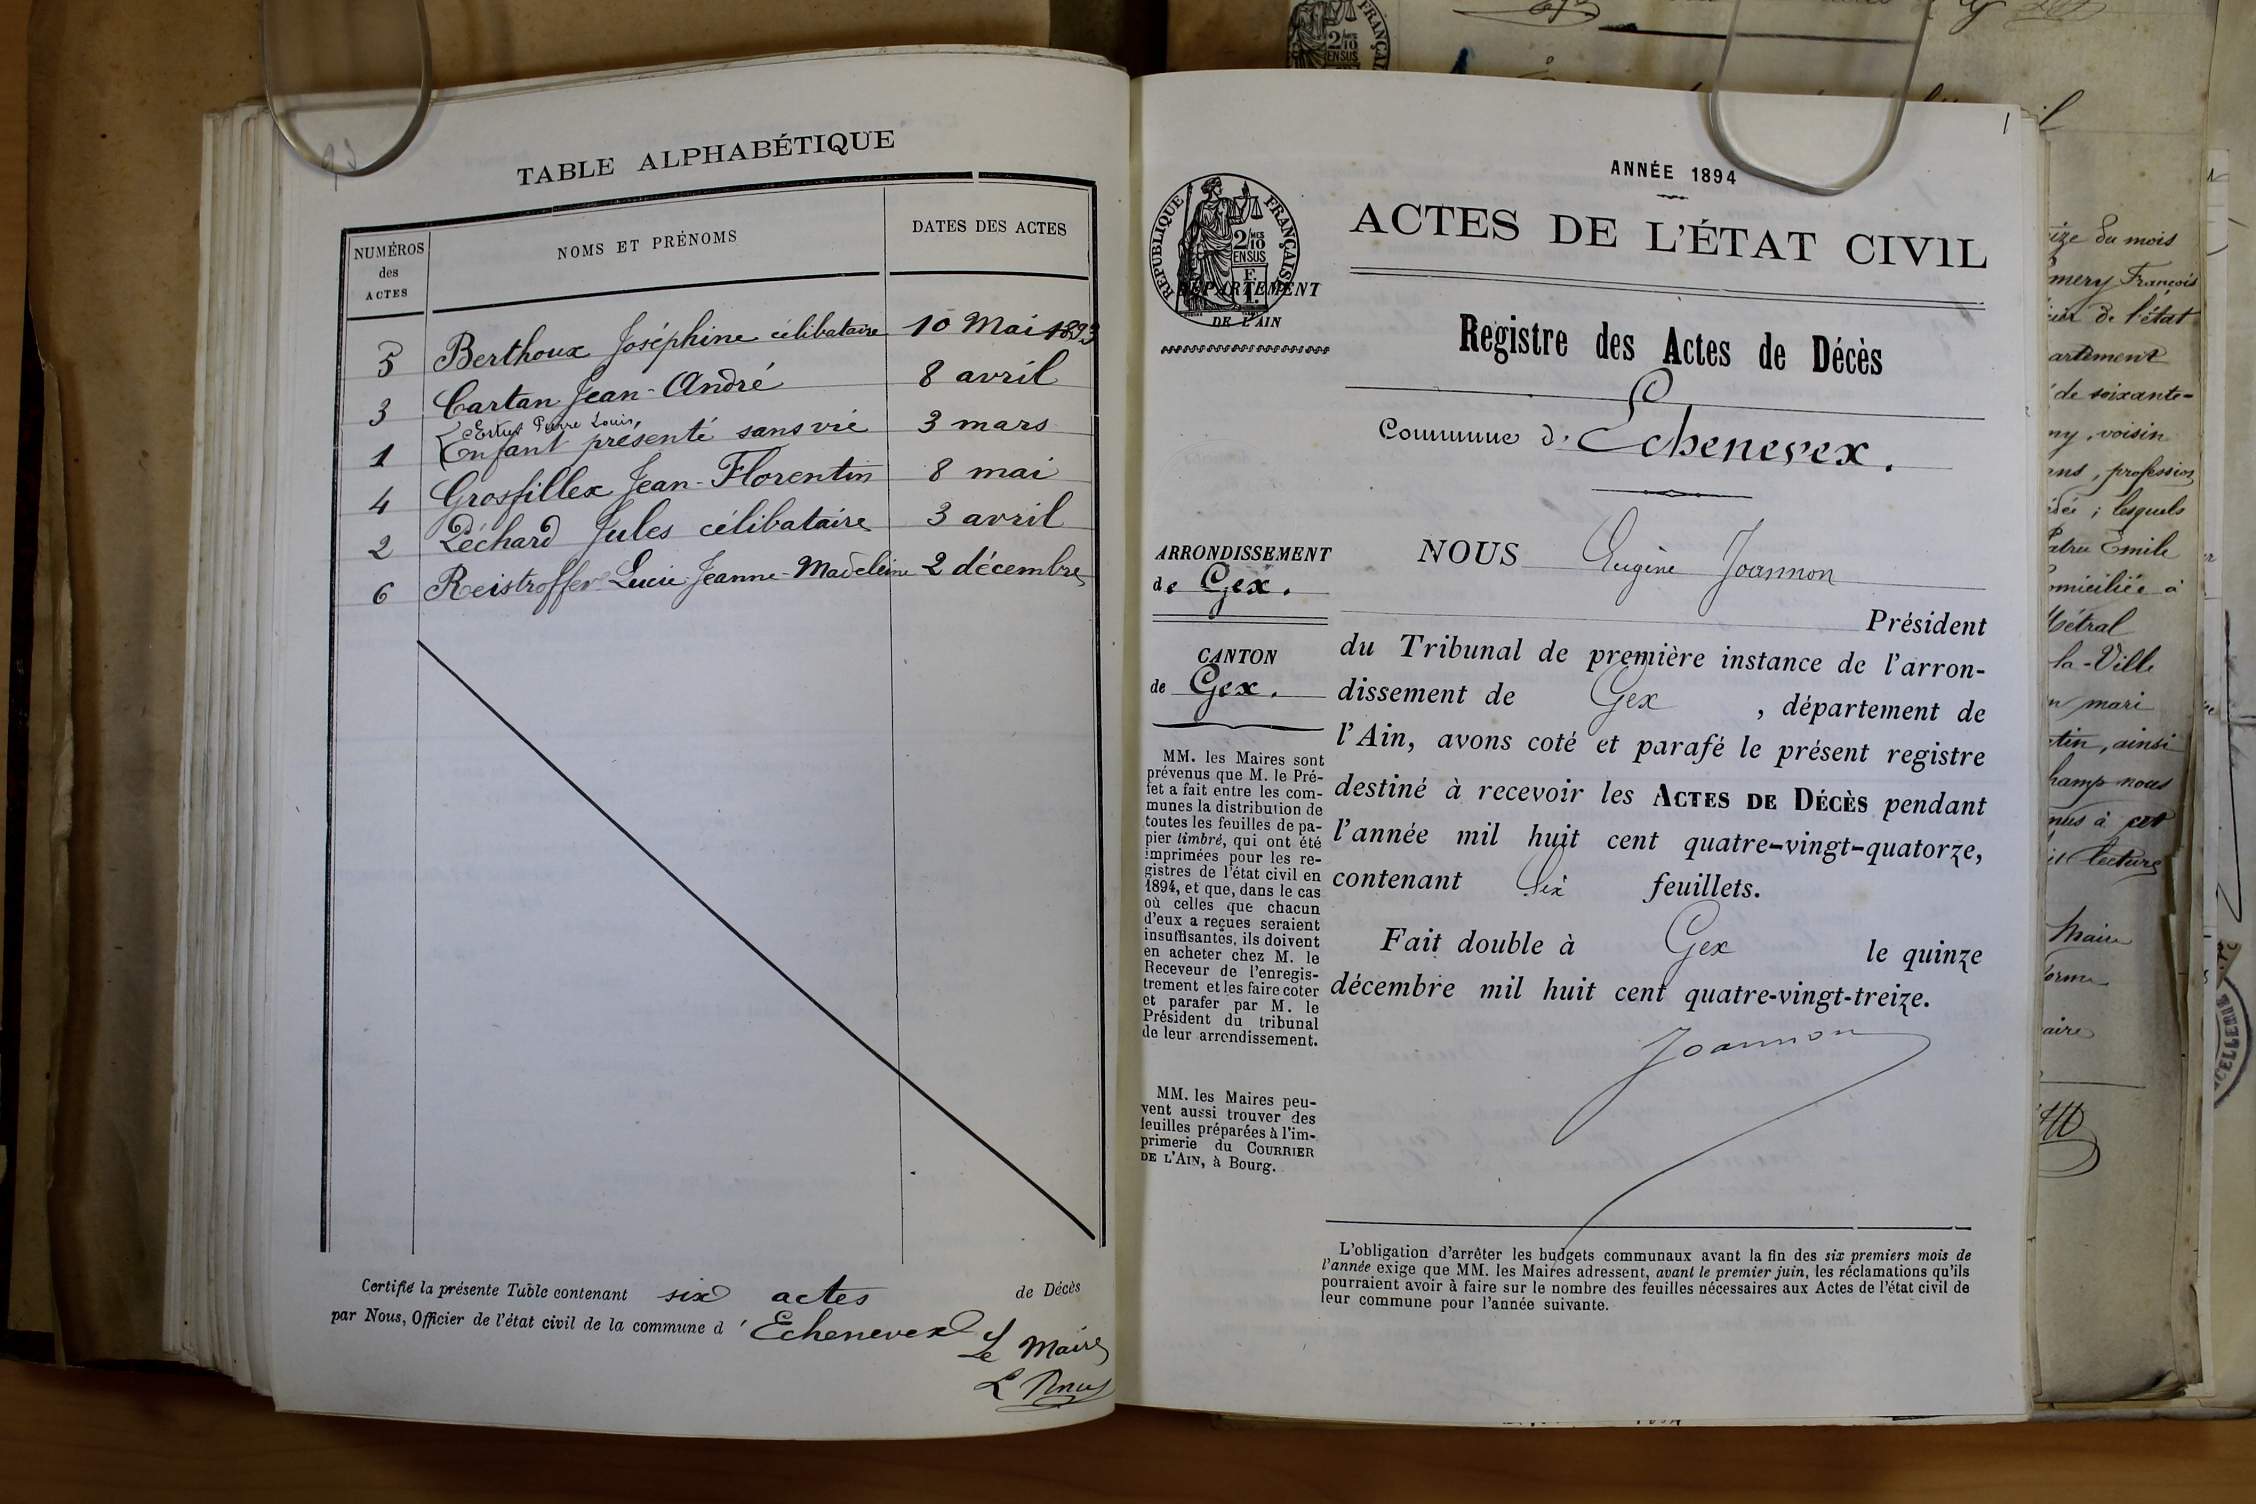 TABLE ALPHABÉTIQUE
NUMÉROS
des
ACTES
NOMS ET PRÉNOMS
DATES DES ACTES
5 Berthoux Joséphine célibataire 10 Mai 1893
3 Cartan Jean-André 8 avril
Pierre Louis,
1 Enfant présenté sans vie 3 mars
4 Grosfillex Jean-Florentin 8 mai
2 Péchard Jules célibataire 3 avril
6 Reistroffer Lucie Jeanne-Madeleine 2 décembre
Certifié la présente Table contenant six actes de Décès
par Nous, Officier de l'état civil de la commune d'Echenevex
Le Maire
1
ANNÉE 1894
ACTES DE L'ÉTAT CIVIL
RÉPUBLIQUE FRANÇAISE
2/10 MES
EN SUS
DÉPARTEMENT
DE L'AIN
Registre des Actes de Décès
Commune d'Echenevex.
ARRONDISSEMENT
de Gex.
CANTON
de Gex.
MM. les Maires sont
prévenus que M. le Pré-
fet a fait entre les com-
munes la distribution de
toutes les feuilles de pa-
pier timbré, qui ont été
imprimées pour les re-
gistres de l'état civil en
1894, et que, dans le cas
où celles que chacun
d'eux a reçues seraient
insuffisantes, ils doivent
en acheter chez M. le
Receveur de l'enregis-
trement et les faire coter
et parafer par M. le
Président du tribunal
de leur arrondissement.
MM. les Maires peu-
vent aussi trouver des
feuilles préparées à l'im-
primerie du COURRIER
DE L'AIN, à Bourg.
NOUS Eugène Joannon
Président
du Tribunal de première instance de l'arron-
dissement de Gex, département de
l'Ain, avons coté et parafé le présent registre
destiné à recevoir les ACTES DE DÉCÈS pendant
l'année mil huit cent quatre-vingt-quatorze,
contenant Six feuillets.
Fait double à Gex le quinze
décembre mil huit cent quatre-vingt-treize.
Joannon
L'obligation d'arrêter les budgets communaux avant la fin des six premiers mois de
l'année exige que MM. les Maires adressent, avant le premier juin, les réclamations qu'ils
pourraient avoir à faire sur le nombre des feuilles nécessaires aux Actes de l'état civil de
leur commune pour l'année suivante.
du mois
François
de l'état
de soixante-
voisin
profession
lesquels
Emile
à
Métral
la-Ville
mari
ainsi
nous
à cet
lecture
Maire